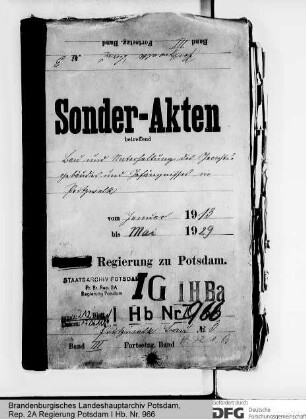 Band III
Fortsetzg. Band
Sonder-Akten
betreffend
Bau und Unterhaltung des Gerichts-
gebäudes und Gefängnisses in
Pritzwalk
vom Januar 1913
bis Mai 1929
Regierung zu Potsdam.
STAATSARCHIV POTSDAM
Pr. Br. Rep. 2A
Regierung Potsdam
I G
I H Ba
I Hb Nr. 966
Band III Fortsetzg. Band
Brandenburgisches Landeshauptarchiv Potsdam,
Rep. 2A Regierung Potsdam I Hb, Nr. 966
Gefördert durch
DFG
Deutsche
Forschungsgemeinschaft